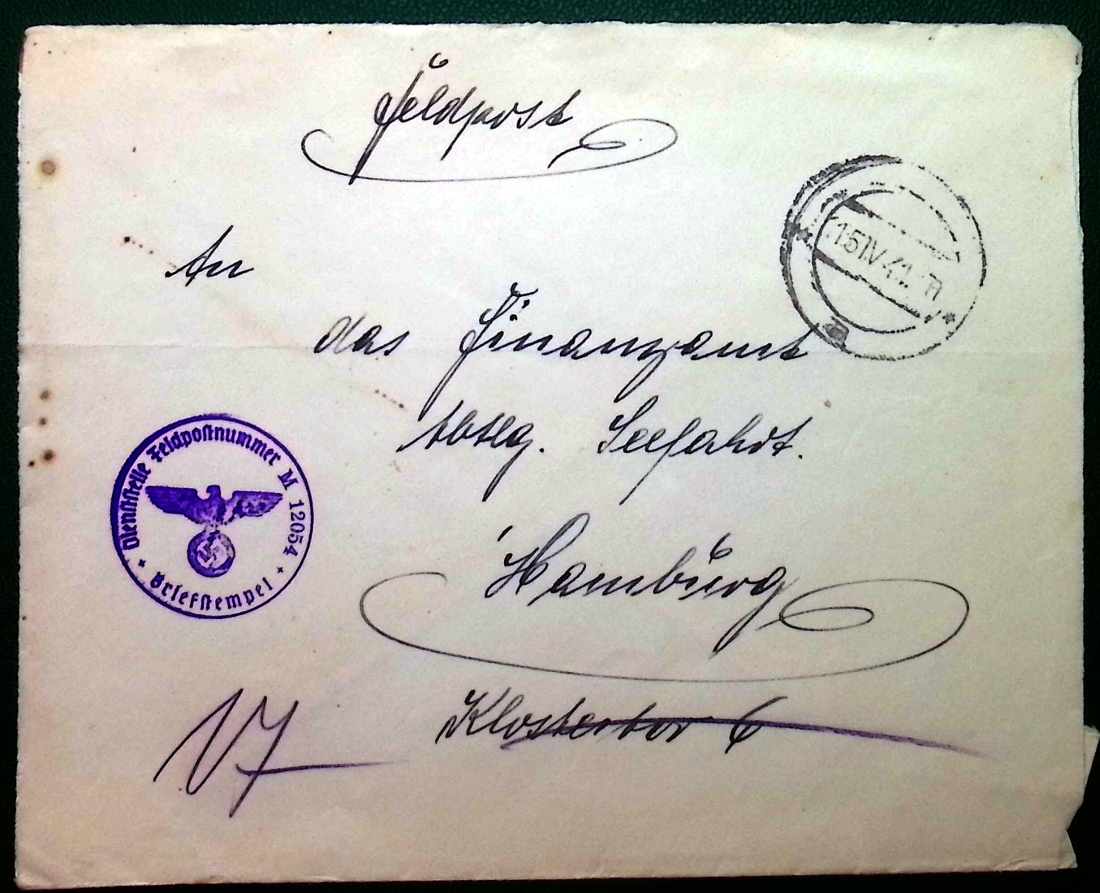 Feldpost
An
das Finanzamt
Abtlg. Seefahrt.
Hamburg
Klostertor 6
15.IV.41.
Dienststelle Feldpostnummer M 12054
Briefstempel